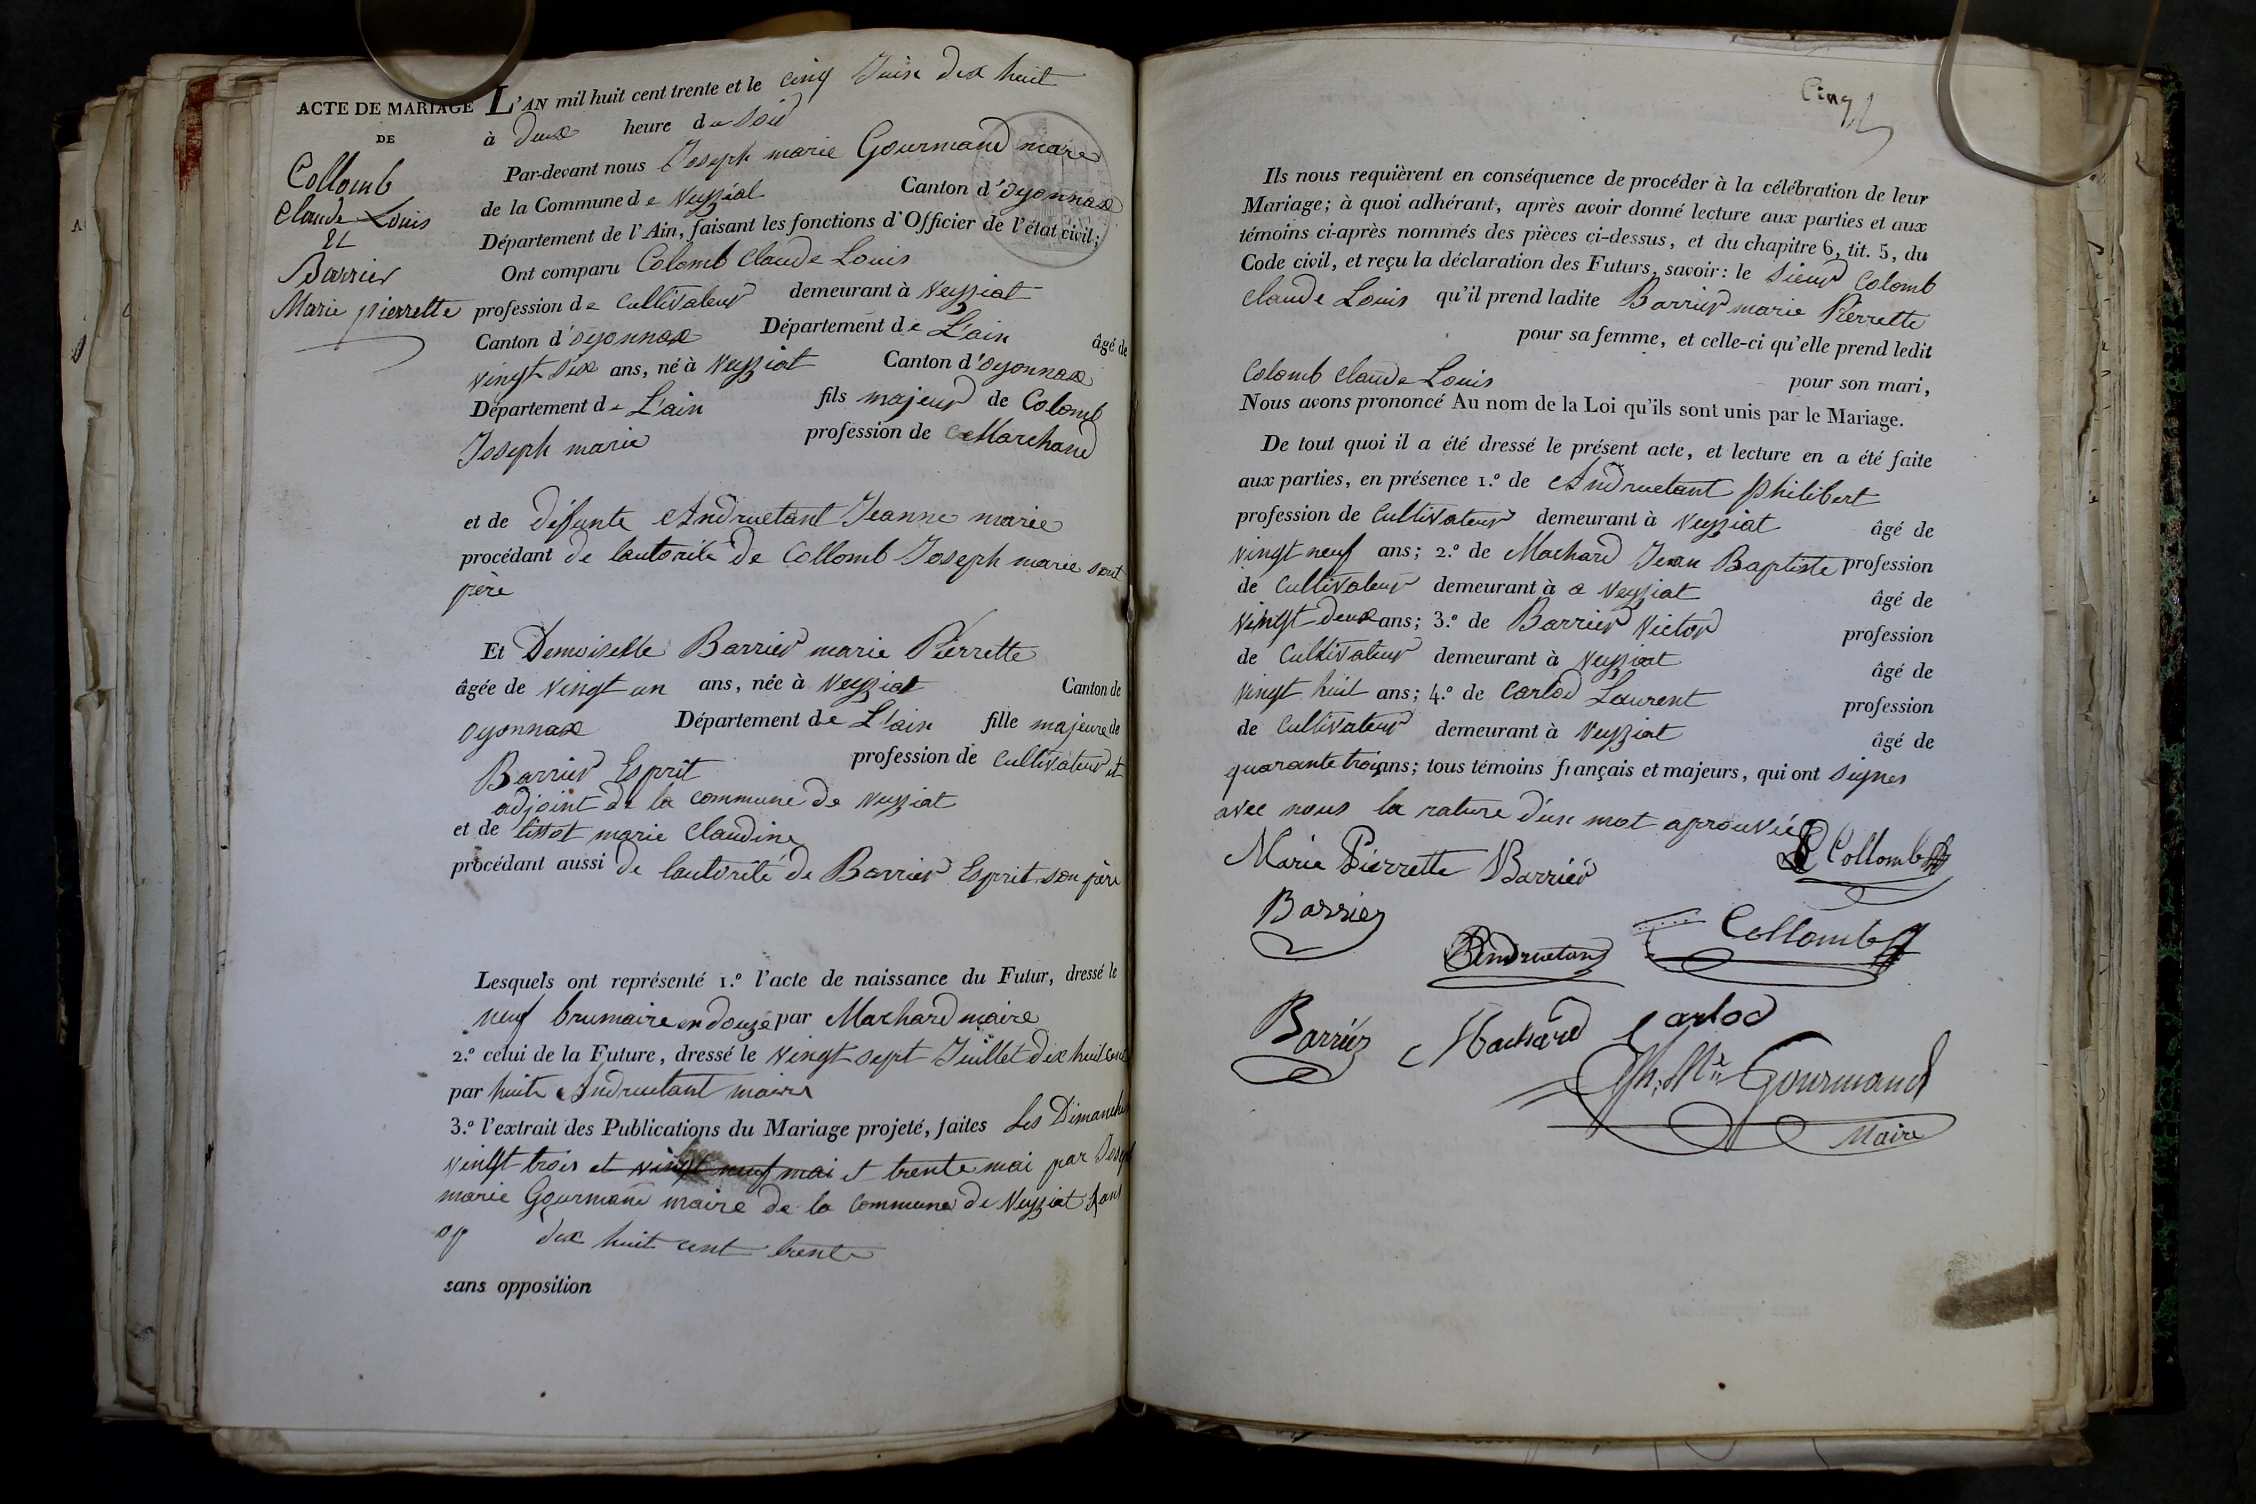 ACTE DE MARIAGE
DE
Collomb
Claude Louis
et
Barrier
Marie pierrette
L'AN mil huit cent trente et le cinq Juin dix huit
à deux heure du soir
Par-devant nous Joseph marie Gourmand maire
de la Commune de Veyziat Canton d'oyonnax
Département de l'Ain, faisant les fonctions d'Officier de l'état civil;
Ont comparu Colomb Claude Louis
profession de cultivateur demeurant à Veyziat
Canton d'oyonnax Département de L'ain âgé de
vingt six ans, né à Veyziat Canton d'oyonnax
Département de L'ain fils majeur de Colomb
Joseph marie profession de Marchand
et de deffunte Andruetant Jeanne marie
procédant de lautorité de Collomb Joseph marie sont
père
Et Demoiselle Barrier marie Pierrette
âgée de vingt un ans, née à Veyziat Canton de
oyonnax Département de L'ain fille majeure de
Barrier Esprit profession de cultivateur et
adjoint de la commune de Veyziat
et de tissot marie Claudine
procédant aussi de lautorité de Barrier Esprit son père
Lesquels ont représenté 1.º l'acte de naissance du Futur, dressé le
neuf brumaire an douze par Machard maire
2.º celui de la Future, dressé le vingt sept Juillet dix huit cent
par huite Andruetant maire
3.º l'extrait des Publications du Mariage projeté, faites Les Dimanches
vingt trois et vingt neuf mai et trente mai par Joseph
marie Gourmand maire de la commune de Veyziat sans
op dix huit cent trente
sans opposition
Cinq
Ils nous requièrent en conséquence de procéder à la célébration de leur
Mariage; à quoi adhérant, après avoir donné lecture aux parties et aux
témoins ci-après nommés des pièces ci-dessus, et du chapitre 6, tit. 5, du
Code civil, et reçu la déclaration des Futurs, savoir: le sieur Colomb
Claude Louis qu'il prend ladite Barrier marie Pierrette
pour sa femme, et celle-ci qu'elle prend ledit
Colomb Claude Louis pour son mari,
Nous avons prononcé Au nom de la Loi qu'ils sont unis par le Mariage.
De tout quoi il a été dressé le présent acte, et lecture en a été faite
aux parties, en présence 1.º de Andruetant philibert
profession de Cultivateur demeurant à Veyziat âgé de
vingt neuf ans; 2.º de Machard Jean Baptiste profession
de Cultivateur demeurant à a Veyziat âgé de
vingt deux ans; 3.º de Barrier Victor profession
de Cultivateur demeurant à Veyziat âgé de
vingt huit ans; 4.º de Carlod Laurent profession
de Cultivateur demeurant à Veyziat âgé de
quarante trois ans; tous témoins français et majeurs, qui ont signes
avec nous la rature d'un mot aprouvée
Marie Pierrette Barrier
Collomb
Barrier
Andruetan
Collomb
Barrier
Machard
Carlod
Jph. Mie Gourmand
Maire